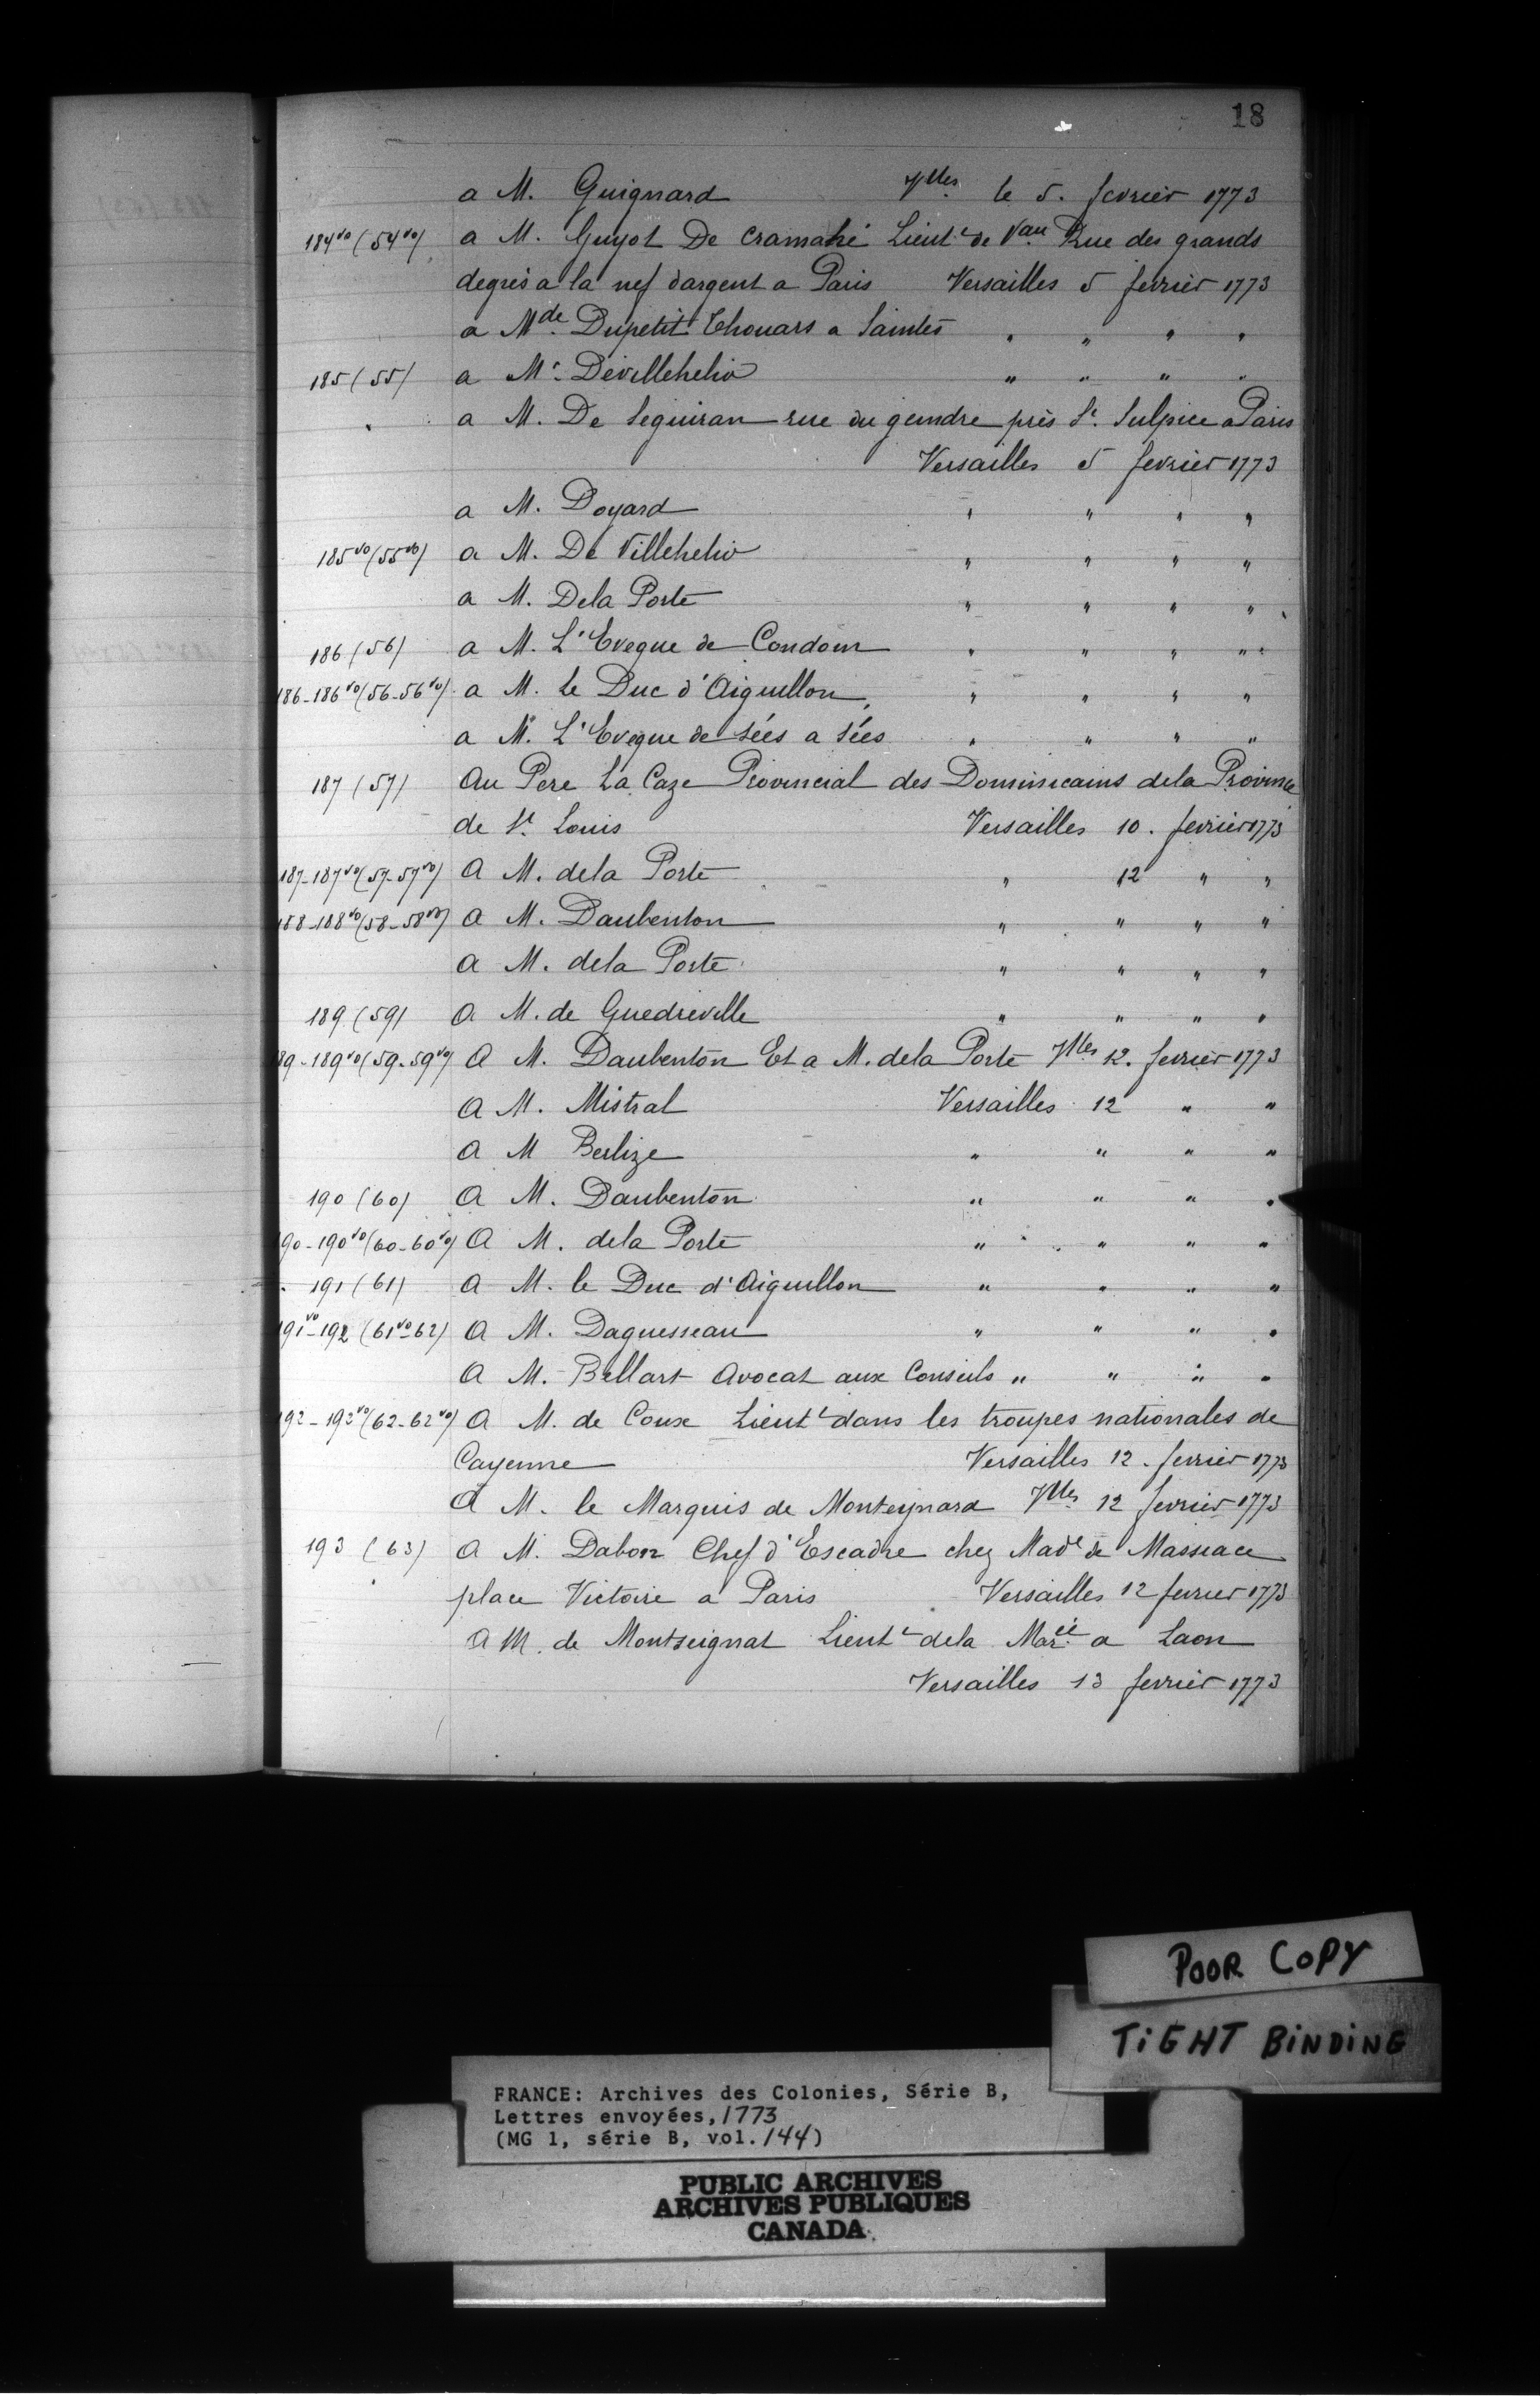 18
a M. Guignard Vlles le 5. fevrier 1773
184vo (54vo) a M. Guyot De Cramahé Lieutt de Vau Rue des grands
degrés a la nef d'argent a Paris Versailles 5 fevrier 1773
a Mde Dupetit Thouars a Saintes " " " "
185 (55) a Mr. Devillehelio " " " "
" a M. De Seguiran rue du geindre près St. Sulpice a Paris
Versailles 5 fevrier 1773
a M. Doyard " " " "
185vo (55vo) a M. De Villehelio " " " "
a M. Dela Porte " " " "
186 (56) a M. L'Eveque de Condom " " " "
186-186vo (56-56vo) a M. le Duc d'Aiguillon, " " " "
a M. L'Eveque de Sées a Sées " " " "
187 (57) Au Pere La Caze Provincial des Dominicains dela Province
de St. Louis Versailles 10. fevrier 1773
187-187vo (57-57vo) A M. dela Porte " 12 " "
188-188vo (58-58vo) A M. Daubenton " " " "
A M. dela Porte " " " "
189 (59) A M. de Guedreville " " " "
89-189vo (59-59vo) A M. Daubenton Et a M. dela Porte Vlles 12. fevrier 1773
A M. Mistral Versailles 12 " "
A M Berlize " " " "
190 (60) A M. Daubenton " " " "
90-190vo (60-60vo) A M. dela Porte " " " "
191 (61) A M. le Duc d'Aiguillon " " " "
191vo-192 (61vo-62) A M. Daguesseau " " " "
A M. Bellart Avocat aux Conseils " " " "
192-192vo (62-62vo) A M. de Coux Lieutt dans les troupes nationales de
Cayenne Versailles 12. fevrier 1773
A M. le Marquis de Monteynard Vlles 12 fevrier 1773
193 (63) A M. Dabon Chef d'Escadre chez Made de Massiace
place Victoire a Paris Versailles 12 fevrier 1773
A M. de Montseignat Lieutt dela Marée a Laon
Versailles 13 fevrier 1773
POOR COPY
TIGHT BINDING
FRANCE: Archives des Colonies, Série B,
Lettres envoyées, 1773
(MG 1, série B, vol. 144)
PUBLIC ARCHIVES
ARCHIVES PUBLIQUES
CANADA